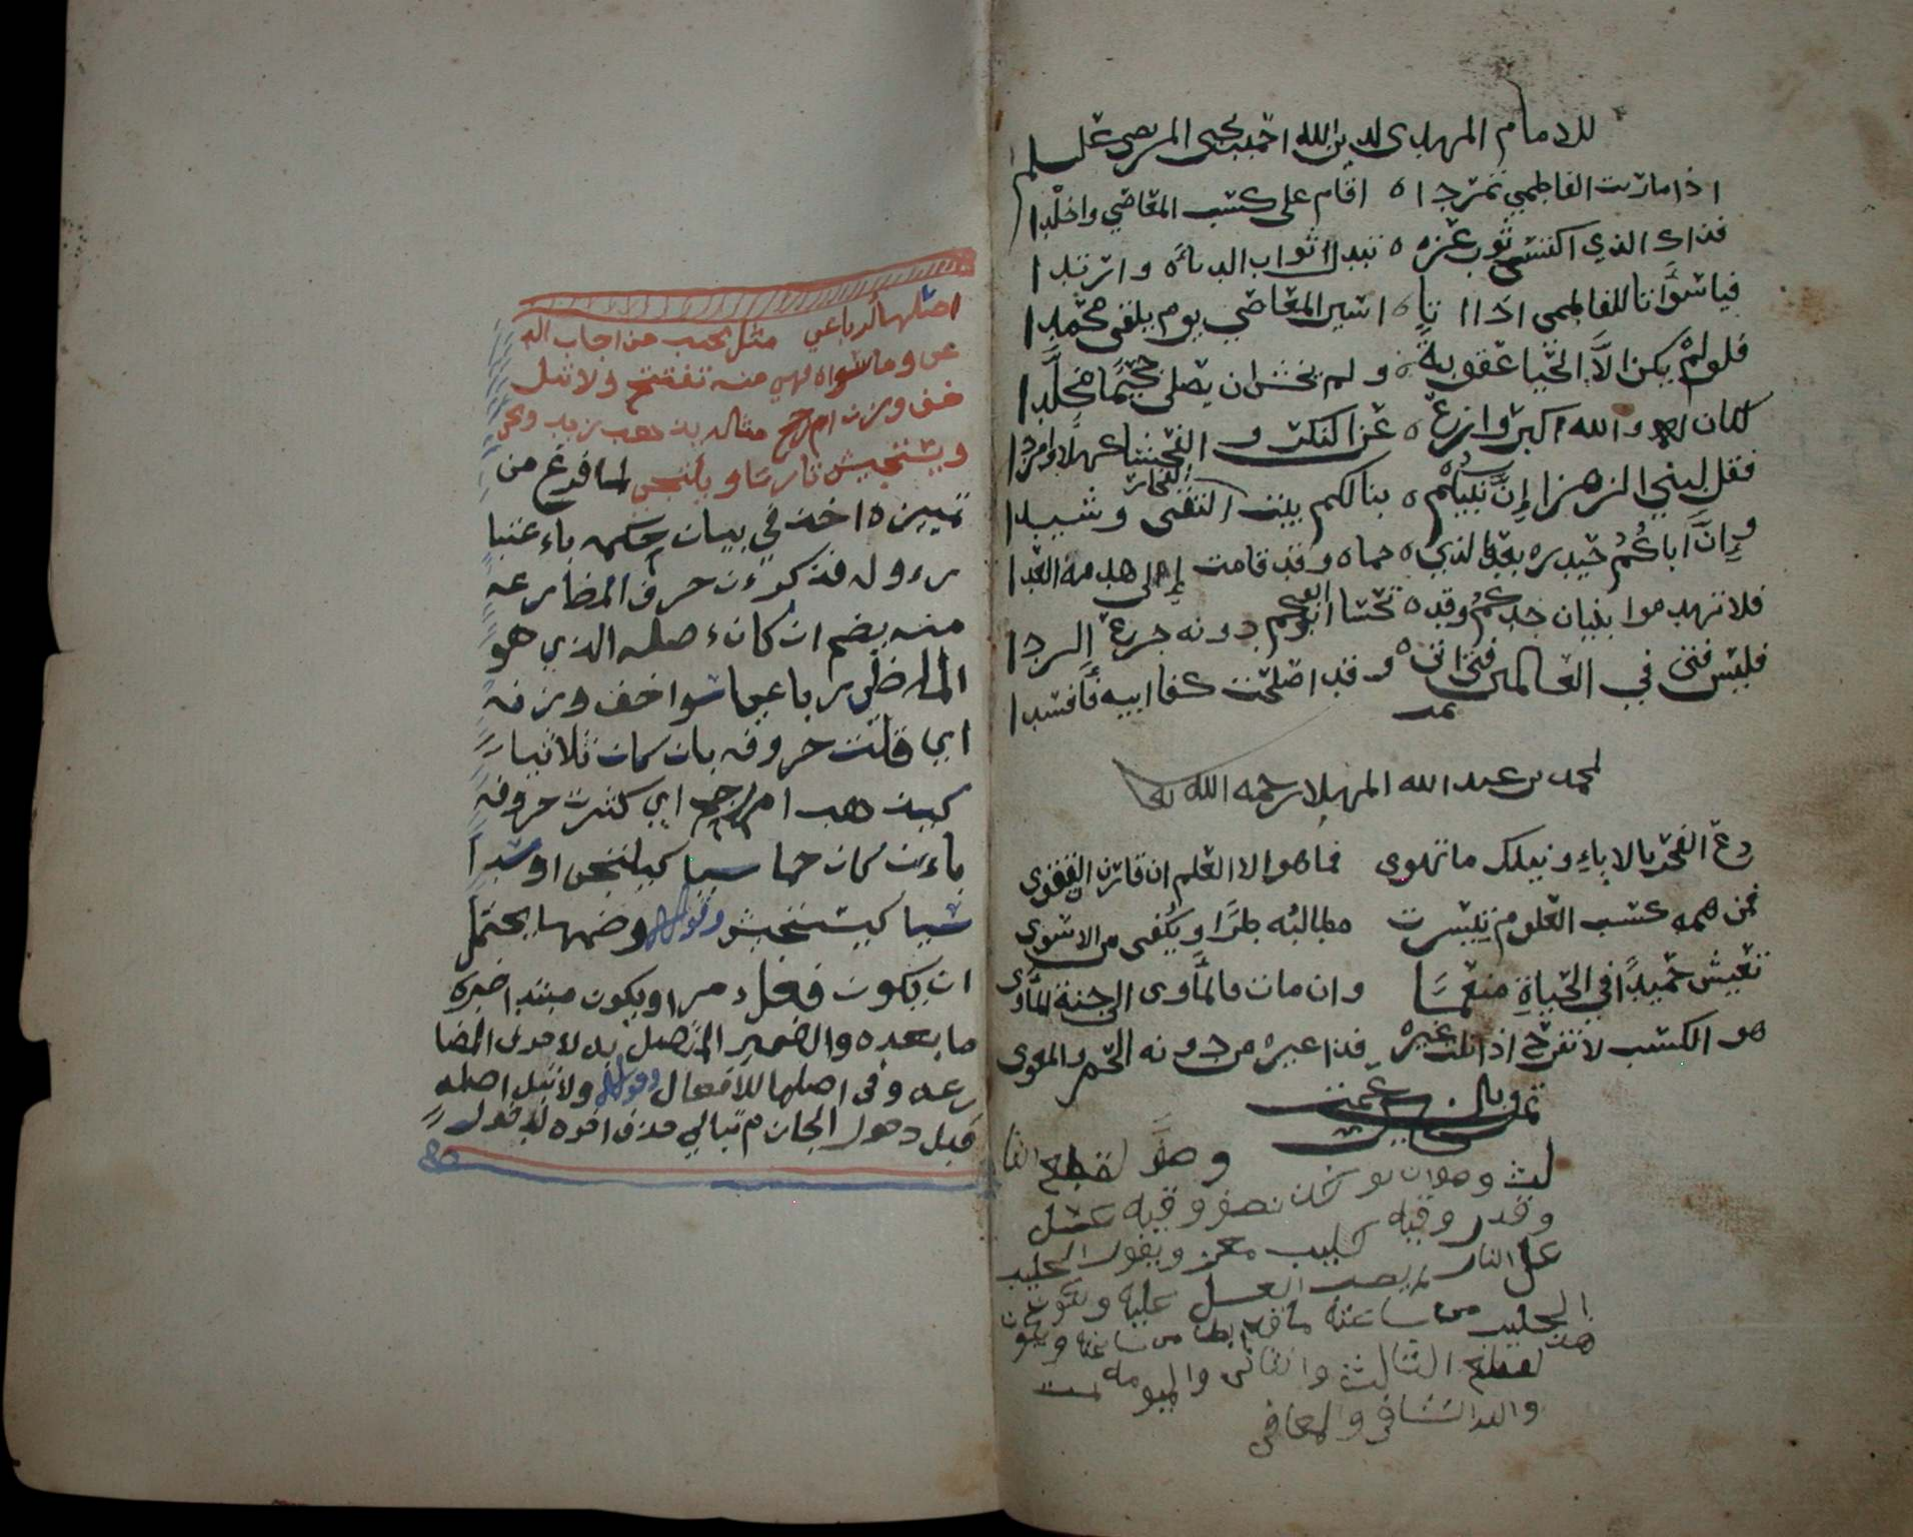 للامام المهدي لدين الله احمد بن يحيى المرتضى عليه السلم
اذا ما رايت الفاطمي تمردا ه اقام على كسب المعاصي واخلدا
فذاك الذي اكتسى ثوب عزه ه تبدل اثواب الدناءه وارتدا
فيا سوأتا للفاطمي اذا اتى ه اسير المعاصي يوم يلقى محمدا
فلو لم يكن الا الحيا عقوبة ه ولم يخش ان يصلى جحيما مخلدا
لكان له والله اكبر وازع ه عن النكر و الفحشا كهلا وامردا
فقل لبني الزهرا إن نبيكم ه بنا لكم بيت التقى وشيدا
وإن أباكم حيدره بعد الذي ه حماه وقد قامت إلى هدمه العدا
فلا تهدموا بنيان جدكم وقد ه تحسا ابوكم دونه جرع الردا
فليس فتى في العالمين فتى اتى ه وقد اصلحت كفا ابيه فأفسدا
تمت
لمحمد بن عبد الله المهلا رحمه الله
دع الفخر بالاباء ونيلك ما تهوى فما هو الا العلم ان قارن التقوى
فمن همه كسب العلوم تيسرت مطالبه طرا ويكفى من الاسوى
تعيش حميدا في الحياة منعما وان مات فالمأوى الى جنة المأوى
هو الكسب لا تفرح اذا نلت غيره فذا غيره من دونه
تمت
وصفة لقطع الثا
لث وهو ان يوخذ نصف وقيه عسل
وقدر وقيه حليب معز ويفور الحليب
على النار ثم يصب العسل عليه ويكون
الحليب من ساعته من ساعته ويكون
هذا لقطع الثالث والثاني واليوميه تمت
والله الشافي والمعافي
اصلها الرباعي مثل يجيب من اجاب الد
عى وما سواه فهي منه تفتتح ولا تبل
خف وزن ام رجح مثاله يذهب زيد ويجي
ويستجيش تارة ويلتجي لما فرغ من
تمييزه اخذ في بيان حكمه باعتبا
منه يضم ان كان اصله الذي هو
الماضي رباعيا سوا خف وزنه
اي قلت حروفه بان كان ثلاثيا
كيذهب ام رجح اي كثرت حروفه
بان كان خماسيا كيلتجي او سدا
سيا كيستجيش وقوله وضمها يحتمل
ان يكون فعل امر او يكون مبتدا خبره
ما بعده والضمير المتصل به لاحرف المضا
رعه وفي اصلها للافعال وقوله ولا تبل اصله
قبل دخول الجازم تبالي حذف اخره لدخول